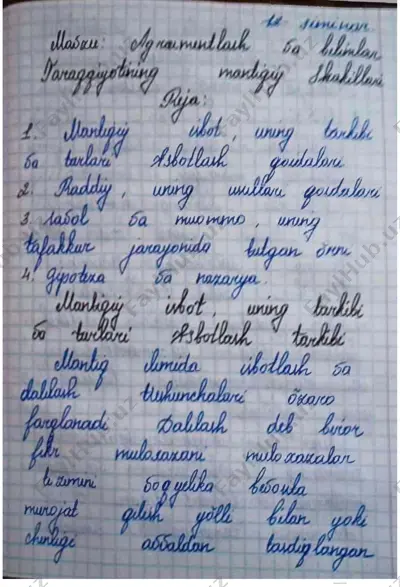 12 seminar
Mavzu: Agraumentlash va bilimlar
Taraqqiyotining mantiqiy shakillari
Reja:
1. Mantiqiy isbot, uning tarkibi
va turlari Asbotlash qoidalari
2. Raddiy, uning usullari qoidalari
3. savol va muommo, uning
tafakkur jarayonida tutgan õrni
4. gipoteza va nazarya.
Mantiqiy isbot, uning tarkibi
va turlari Asbotlash tarkibi
Mantiq ilimida isbotlash va
dalilash tushunchalari õzaro
farqlanadi Dalilash deb biror
fikr mulosaxani muloxazalar
tizimini voqyelika bevosita
murojat qilish yõlli bilan yoki
chinligi avvaldan tasdiqlangan
FaylHub.uz